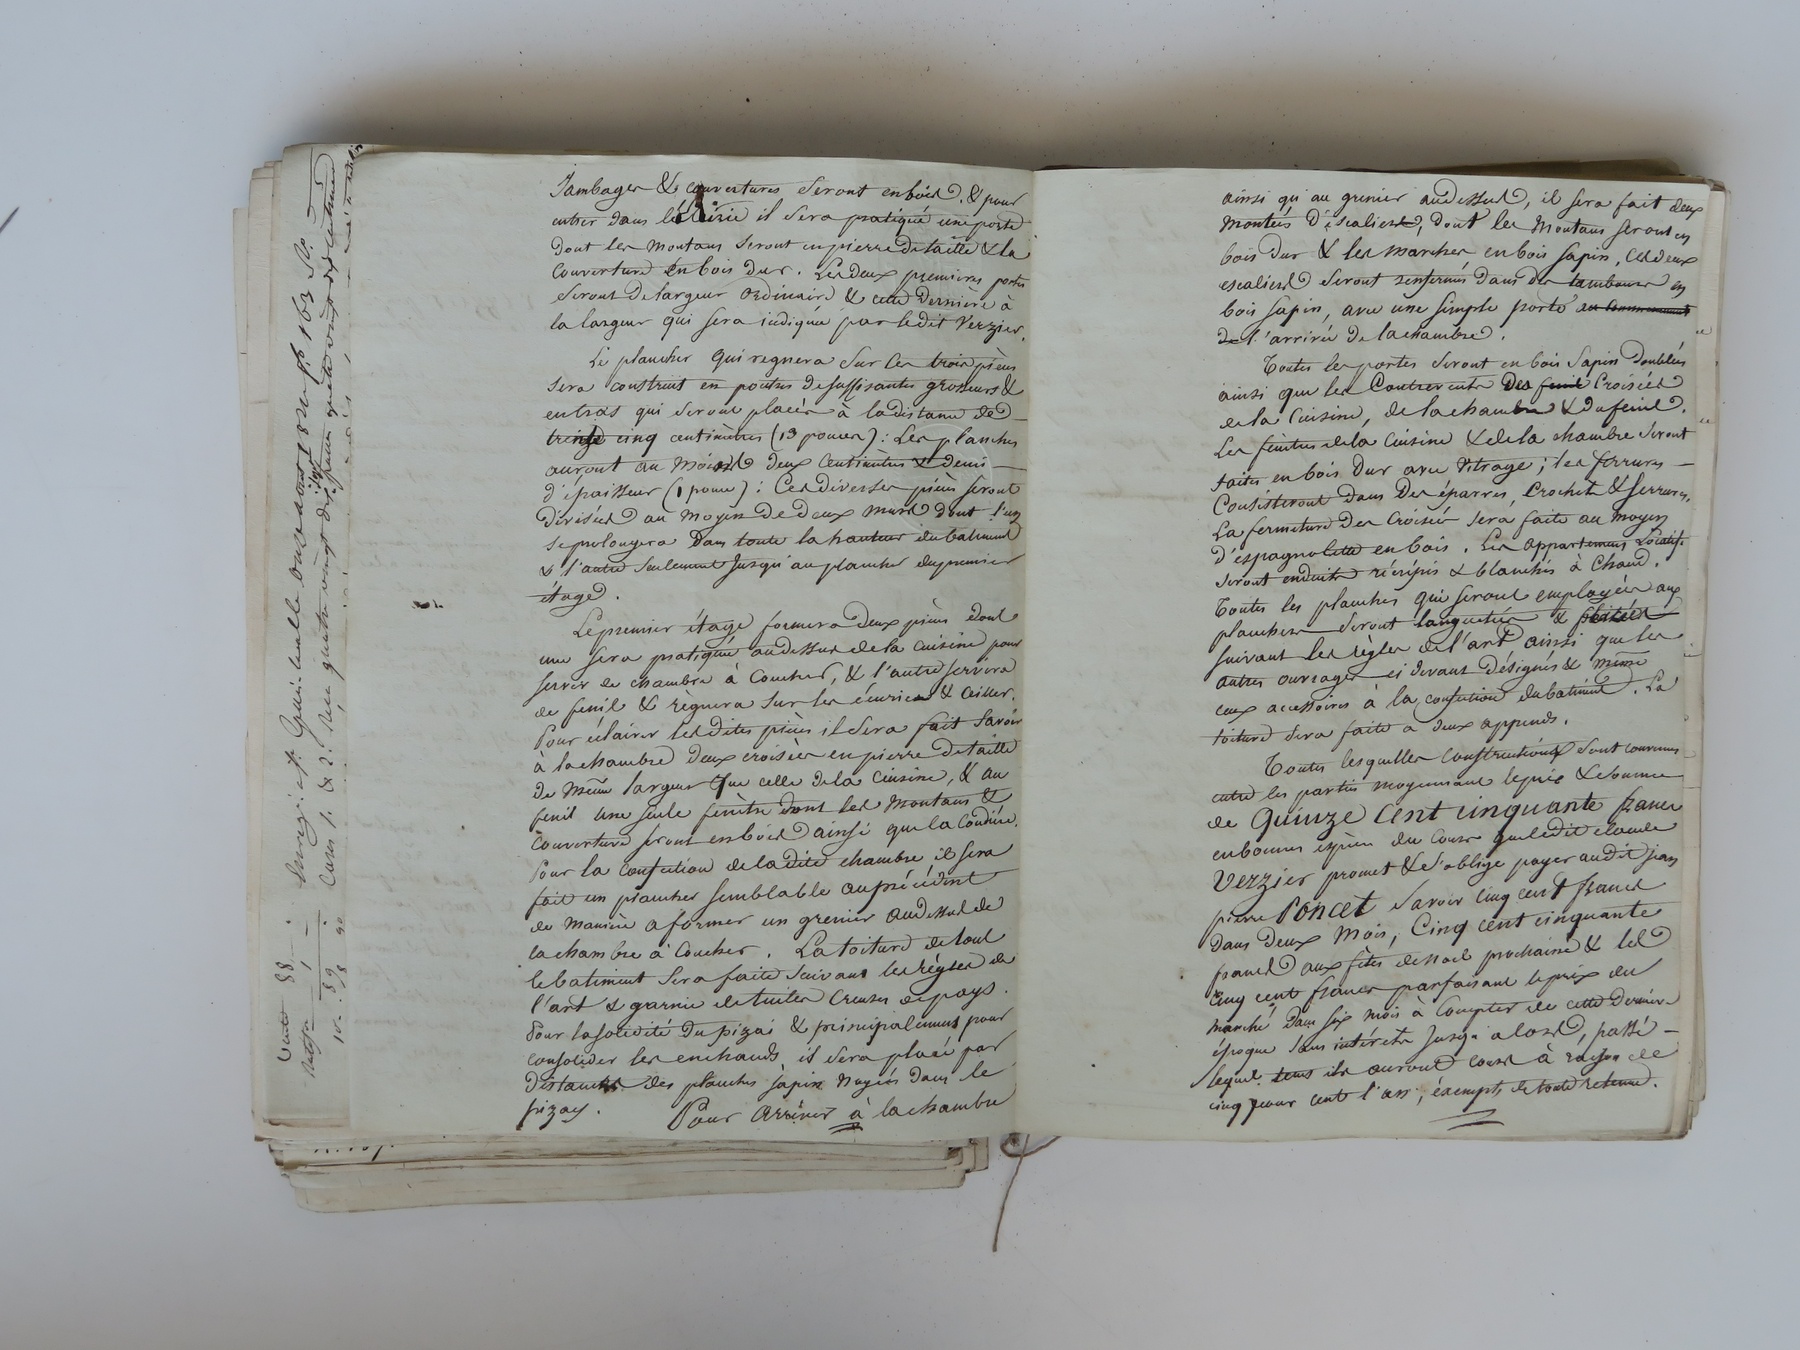 Jambages & couvertures seront en bois. & pour
entrer dans l'écurie il sera pratiqué une porte
dont les montans seront en pierre de taille & la
couverture en bois dur. Les deux premieres portes
seront de largeur ordinaire & cette dernière à
la largeur qui sera indiquée par ledit Verzier.
Le plancher qui regnera sur ces trois pièces
sera construit en poutres de suffisantes grosseurs &
entras qui seront placés à la distance de
trente cinq centimètres (13 pouces): Les planches
auront au moins deux centimètres & demi
d'épaisseur (1 pouce): Ces diverses pièces seront
divisées au moyen de deux murs dont l'un
se prolongera dans toute la hauteur du batiment
& l'autre seulement jusqu'au plancher du premier
étage.
Le premier étage formera deux pièces dont
une sera pratiquée au dessus de la cuisine pour
servir de chambre à coucher, & l'autre servira
de fenil & règnera sur les écuries & cellier.
Pour éclairer lesdites pièces il sera fait savoir
à la chambre deux croisées en pierre de taille
de même largeur que celle de la cuisine, & au
fenil une seule fenêtre dont les montans &
couverture seront en bois ainsi que la coudière.
Pour la confection de ladite chambre il sera
fait un plancher semblable au précédent
de manière a former un grenier au dessus de
la chambre à coucher. La toiture de tout
le batiment sera faite suivant les règles de
l'art & garnie de tuiles creuses de pays.
Pour la solidité du pizai & principalement pour
consolider les enchauds il sera placé par
distances des planches sapin noyées dans le
pizay. Pour arriver à la chambre
ainsi qu'au grenier au dessus, il sera fait deux
montées d'escaliers, dont les montans seront en
bois dur & les marches en bois sapin, ces deux
escaliers seront renfermés dans des tambours en
bois sapin, avec une simple porte au commencement
de l'arrivée de la chambre.
Toutes les portes seront en bois sapin doublées
ainsi que les contrevents des croisées
de la cuisine, de la chambre & du fenil.
Les fenêtres de la cuisine & de la chambre seront
faites en bois dur avec vitrage; les ferrures
consisteront dans des éparres, crochets & serrures,
La fermeture des croisées sera faite au moyen
d'espagnolette en bois. Les appartemens locatifs
seront enduits récrépis & blanchis à chaud.
Toutes les planches qui seront employées aux
planchers seront languetées &
suivant les règles de l'art, ainsi que les
autres ouvrages ci devant désignés & même
ceux accessoires à la confection du batiment. La
toiture sera faite a deux appends.
Toutes lesquelles constructions sont convenues
entre les parties moyennant le prix & somme
de Quinze cent cinquante francs
en bonnes espèces du cours que ledit claude
Verzier promet & s'oblige payer audit jean
pierre Poncet savoir cinq cent francs
dans deux mois, cinq cent cinquante
francs aux fêtes de noel prochaine & les
cinq cent francs parfaisant le prix du
marché dans six mois à compter de cette dernière
époque sans intérets jusqu'alors, passé
lequel tems ils auront cours à raison de
cinq pour cent l'an, éxempts de toute retenue.